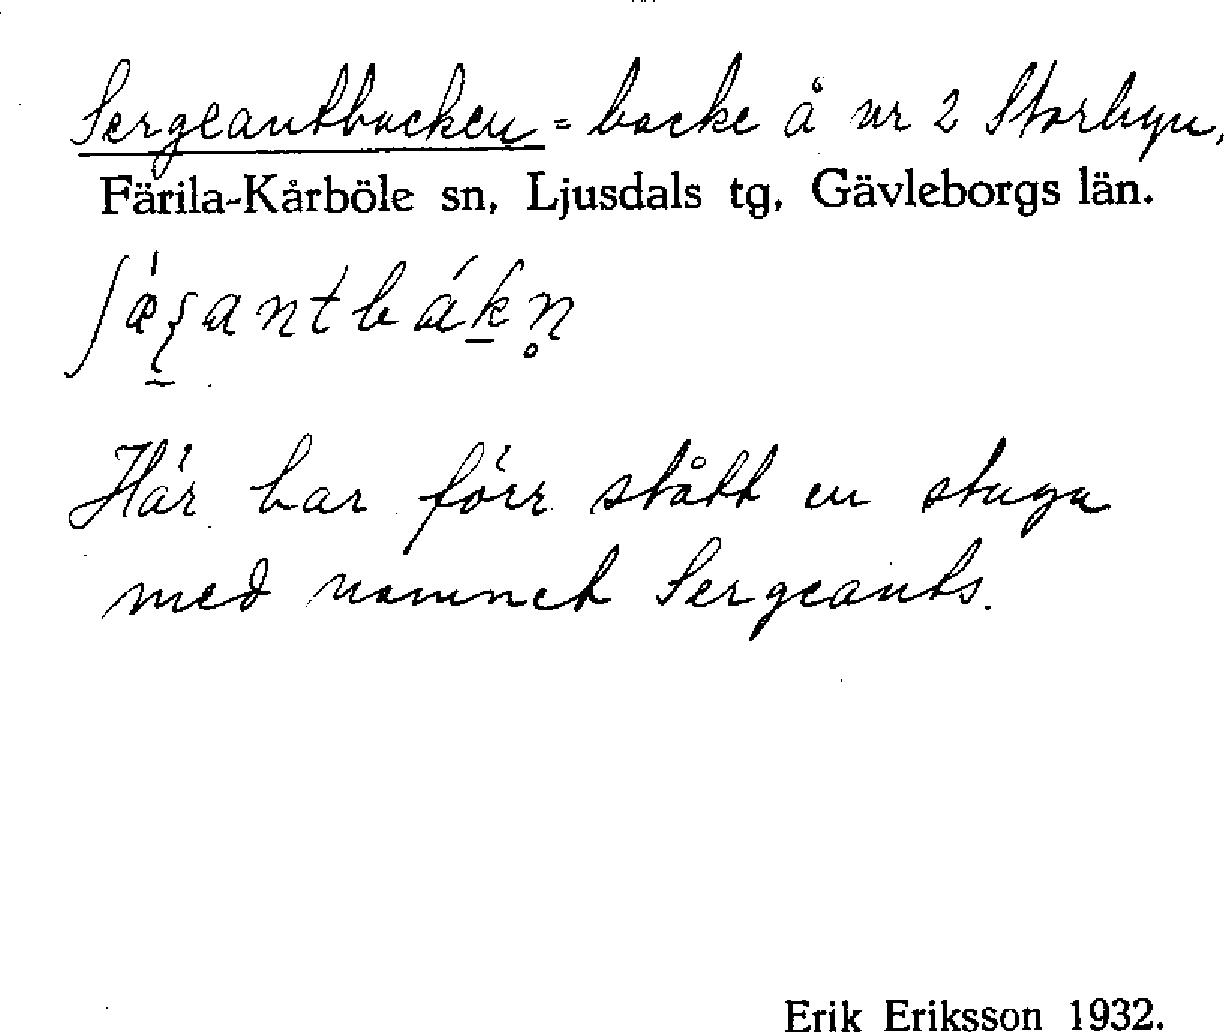 Sergeantbacken = backe å nr 2 Storbyn,
Färila-Kårböle sn, Ljusdals tg, Gävleborgs län.
Här har förr stått en stuga
med namnet Sergeants.
Erik Eriksson 1932.